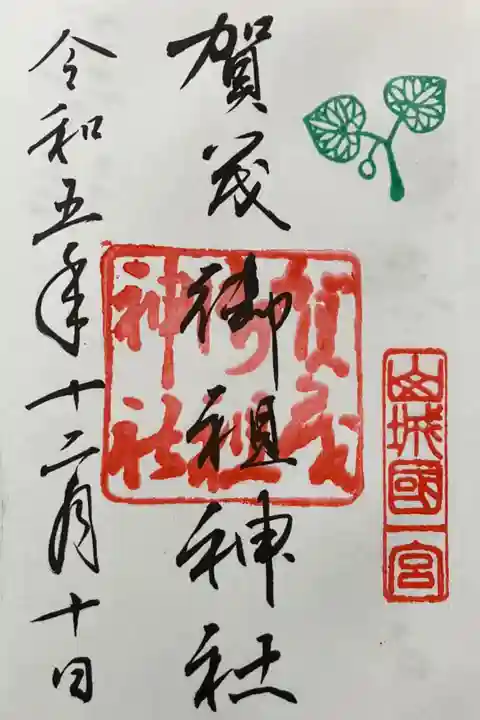 山城國一宮
賀茂御祖神社
賀茂
御祖
神社
令和五年十二月十日